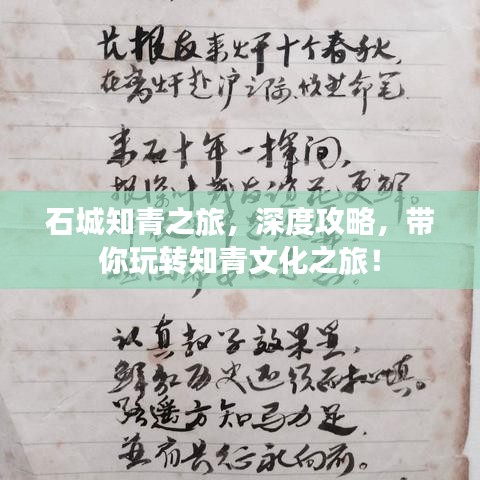 报友来十个春秋,
在离赴沪之际,命笔
来石十年一挥间,
更鲜
石城知青之旅，深度攻略，带
你玩转知青文化之旅！
认真教学效果显,
鲜红历史必须填。
路遥方知马力足,
并肩共征永向前。